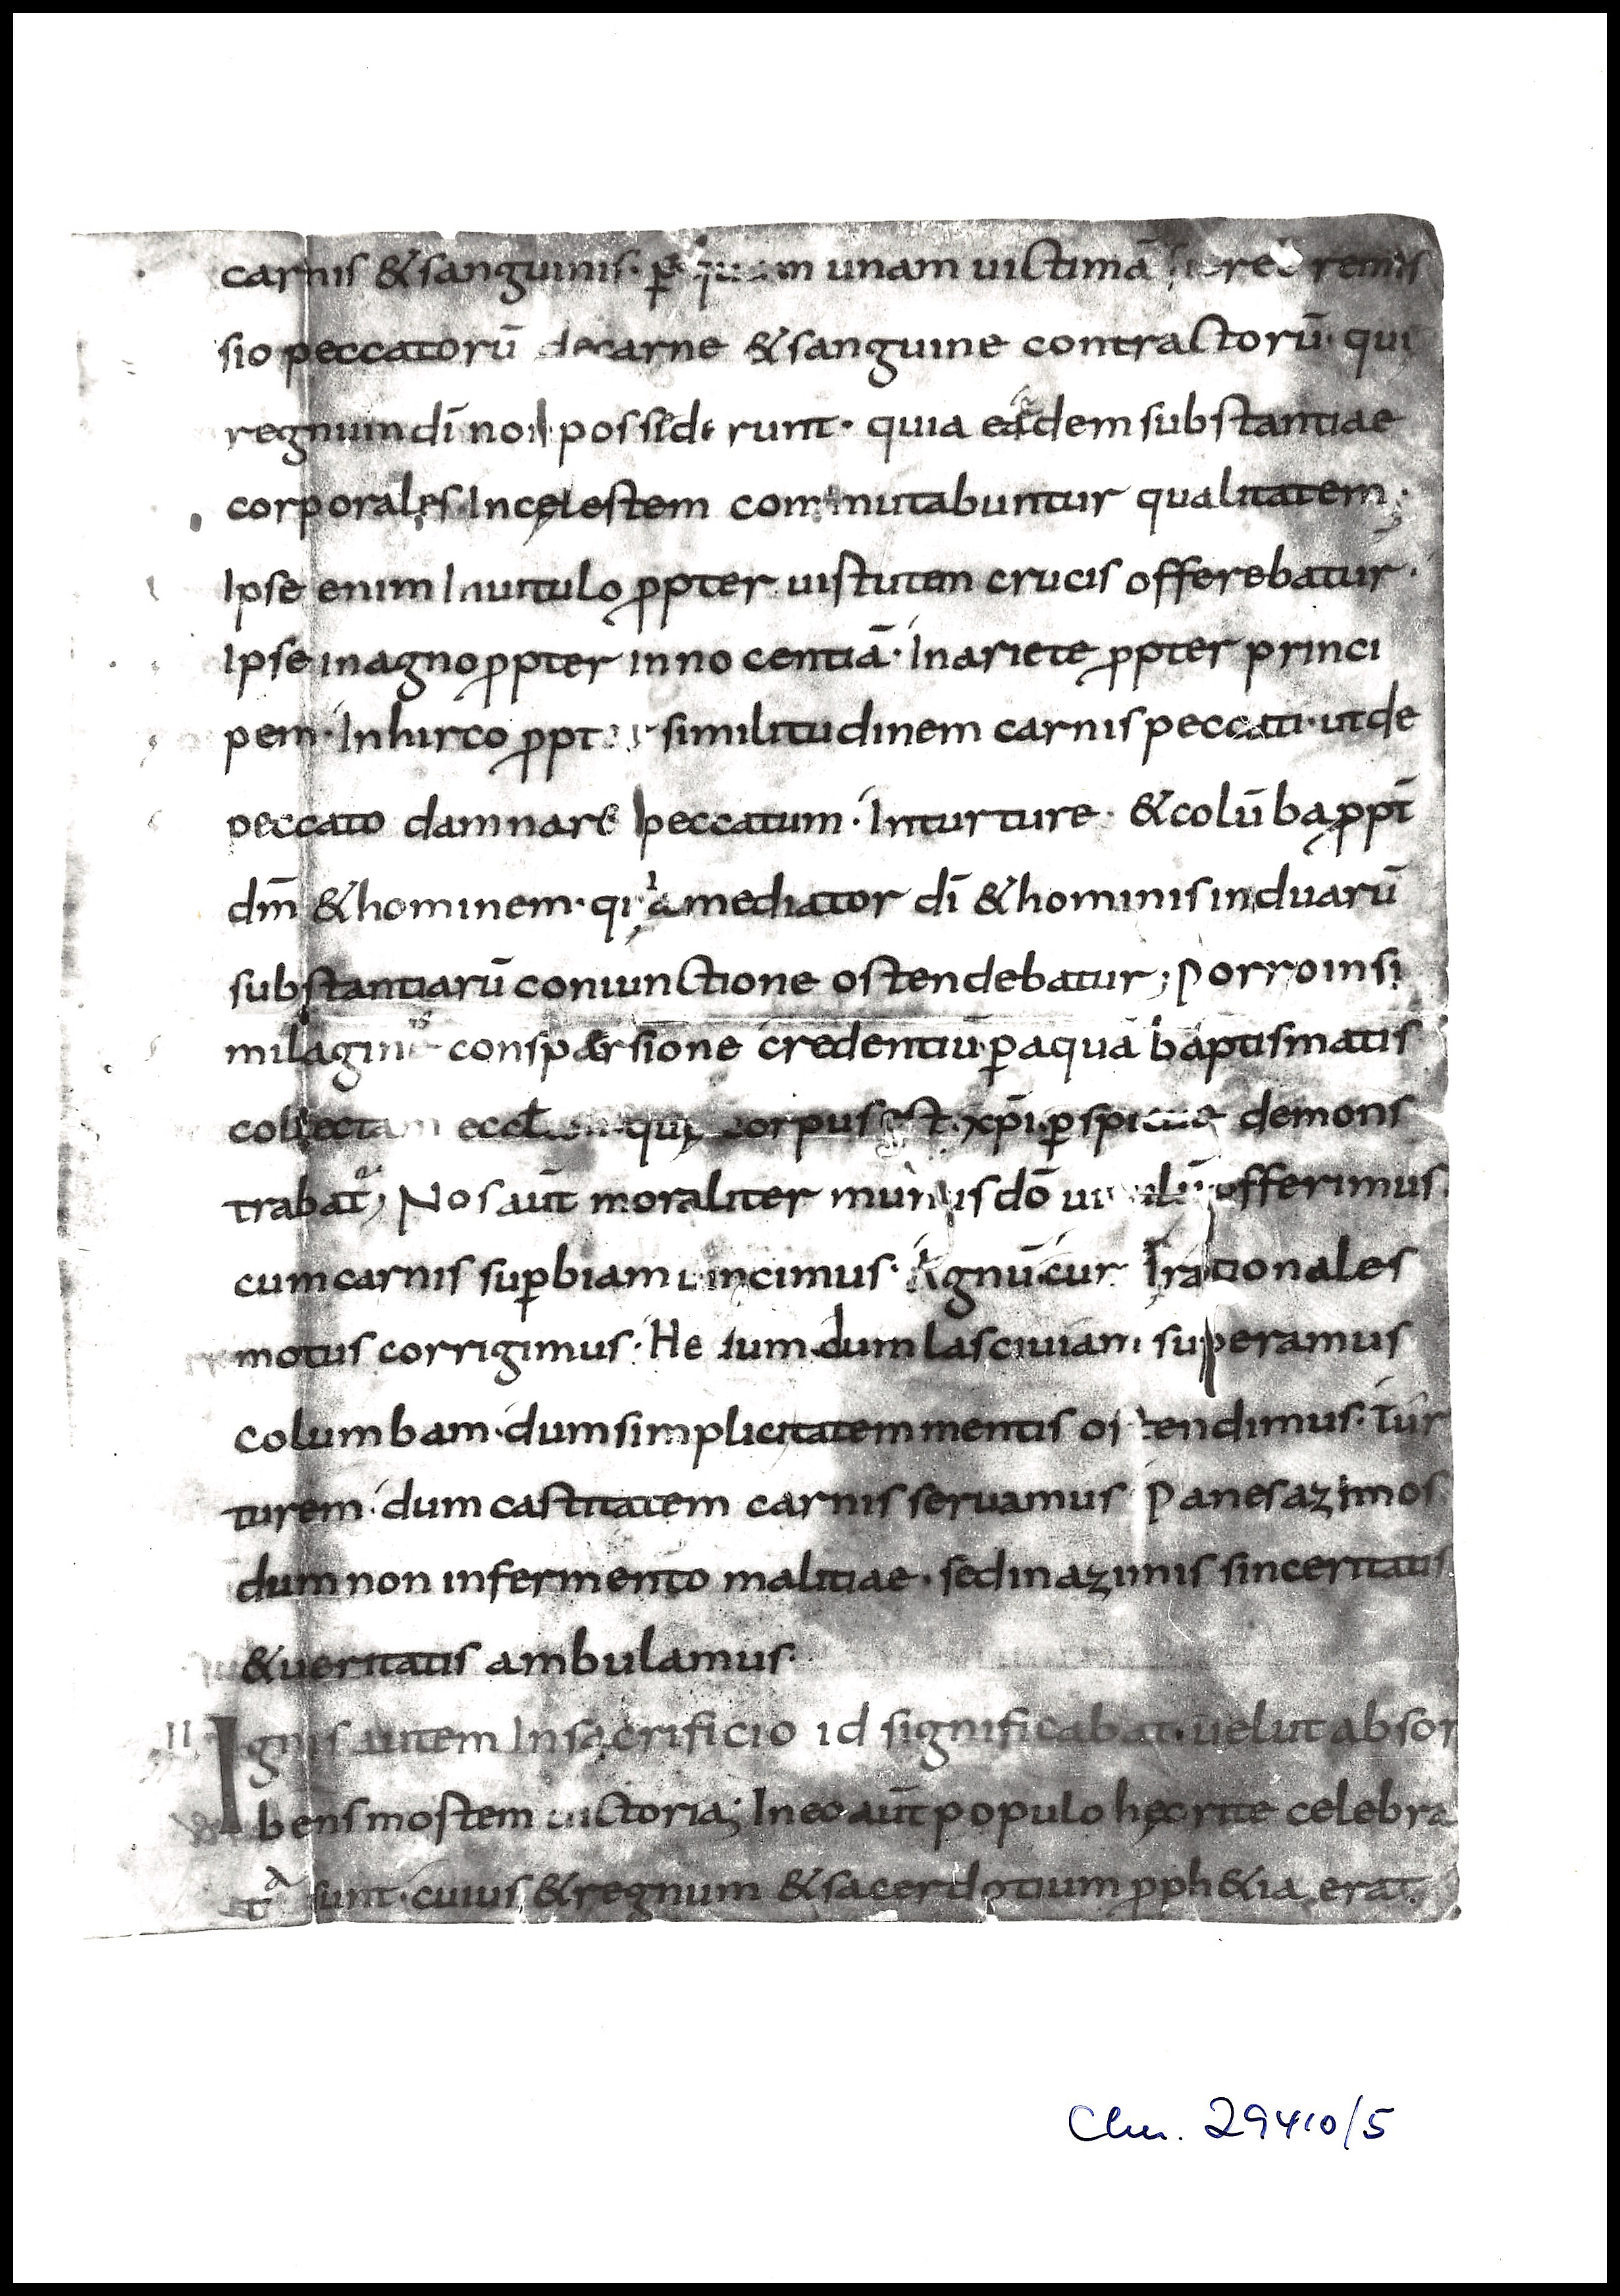 carnis & sanguinis· p̄ quam unam uictimā fieret remis
sio peccatorū de carne & sanguine contractorū· qui
regnum dī non possederunt· quia eadem substantiae
corporales· Incęlestem commutabuntur qualitatem;
Ipse enim Inuitulo ꝓpter uirtutem crucis offerebatur·
Ipse in agno ꝓpter innocentiā· In ariete ꝓpter princi
pem· In hirco ꝓpter similitudinem carnis peccati· ut de
peccato damnare peccatum· Inturture· & colūba ꝓpt̄
dm̄ & hominem· quia mediator dī & hominis in duarū
substantiarū coniunctione ostendebatur; Porro in si
milaginis conspærsione credentiū ꝑ aquā baptismatis
collectam eccl quę corpus est xp̄i ꝑspicuae demons
trabat; Nos aūt moraliter munus dō uitulū offerimus·
cum carnis suꝑbiam uincimus· Agnū cum Irrationales
motus corrigimus· Hedum dum lasciuiam superamus
Columbam· dum simplicitatem mentis ostendimus· Tur
turem· dum castitatem carnis seruamus Panes azimos
dum non in fermento malitiae· sed in azimis sinceritatis
& ueritatis ambulamus·
II Ignis autem In sacrificio id significabat· uelut absor
bens mortem uictoria; In eo aūt populo hęc rite celebra
ta sunt· cuius & regnum & sacerdotium ꝓph&ia erat·
Clm. 29410/5